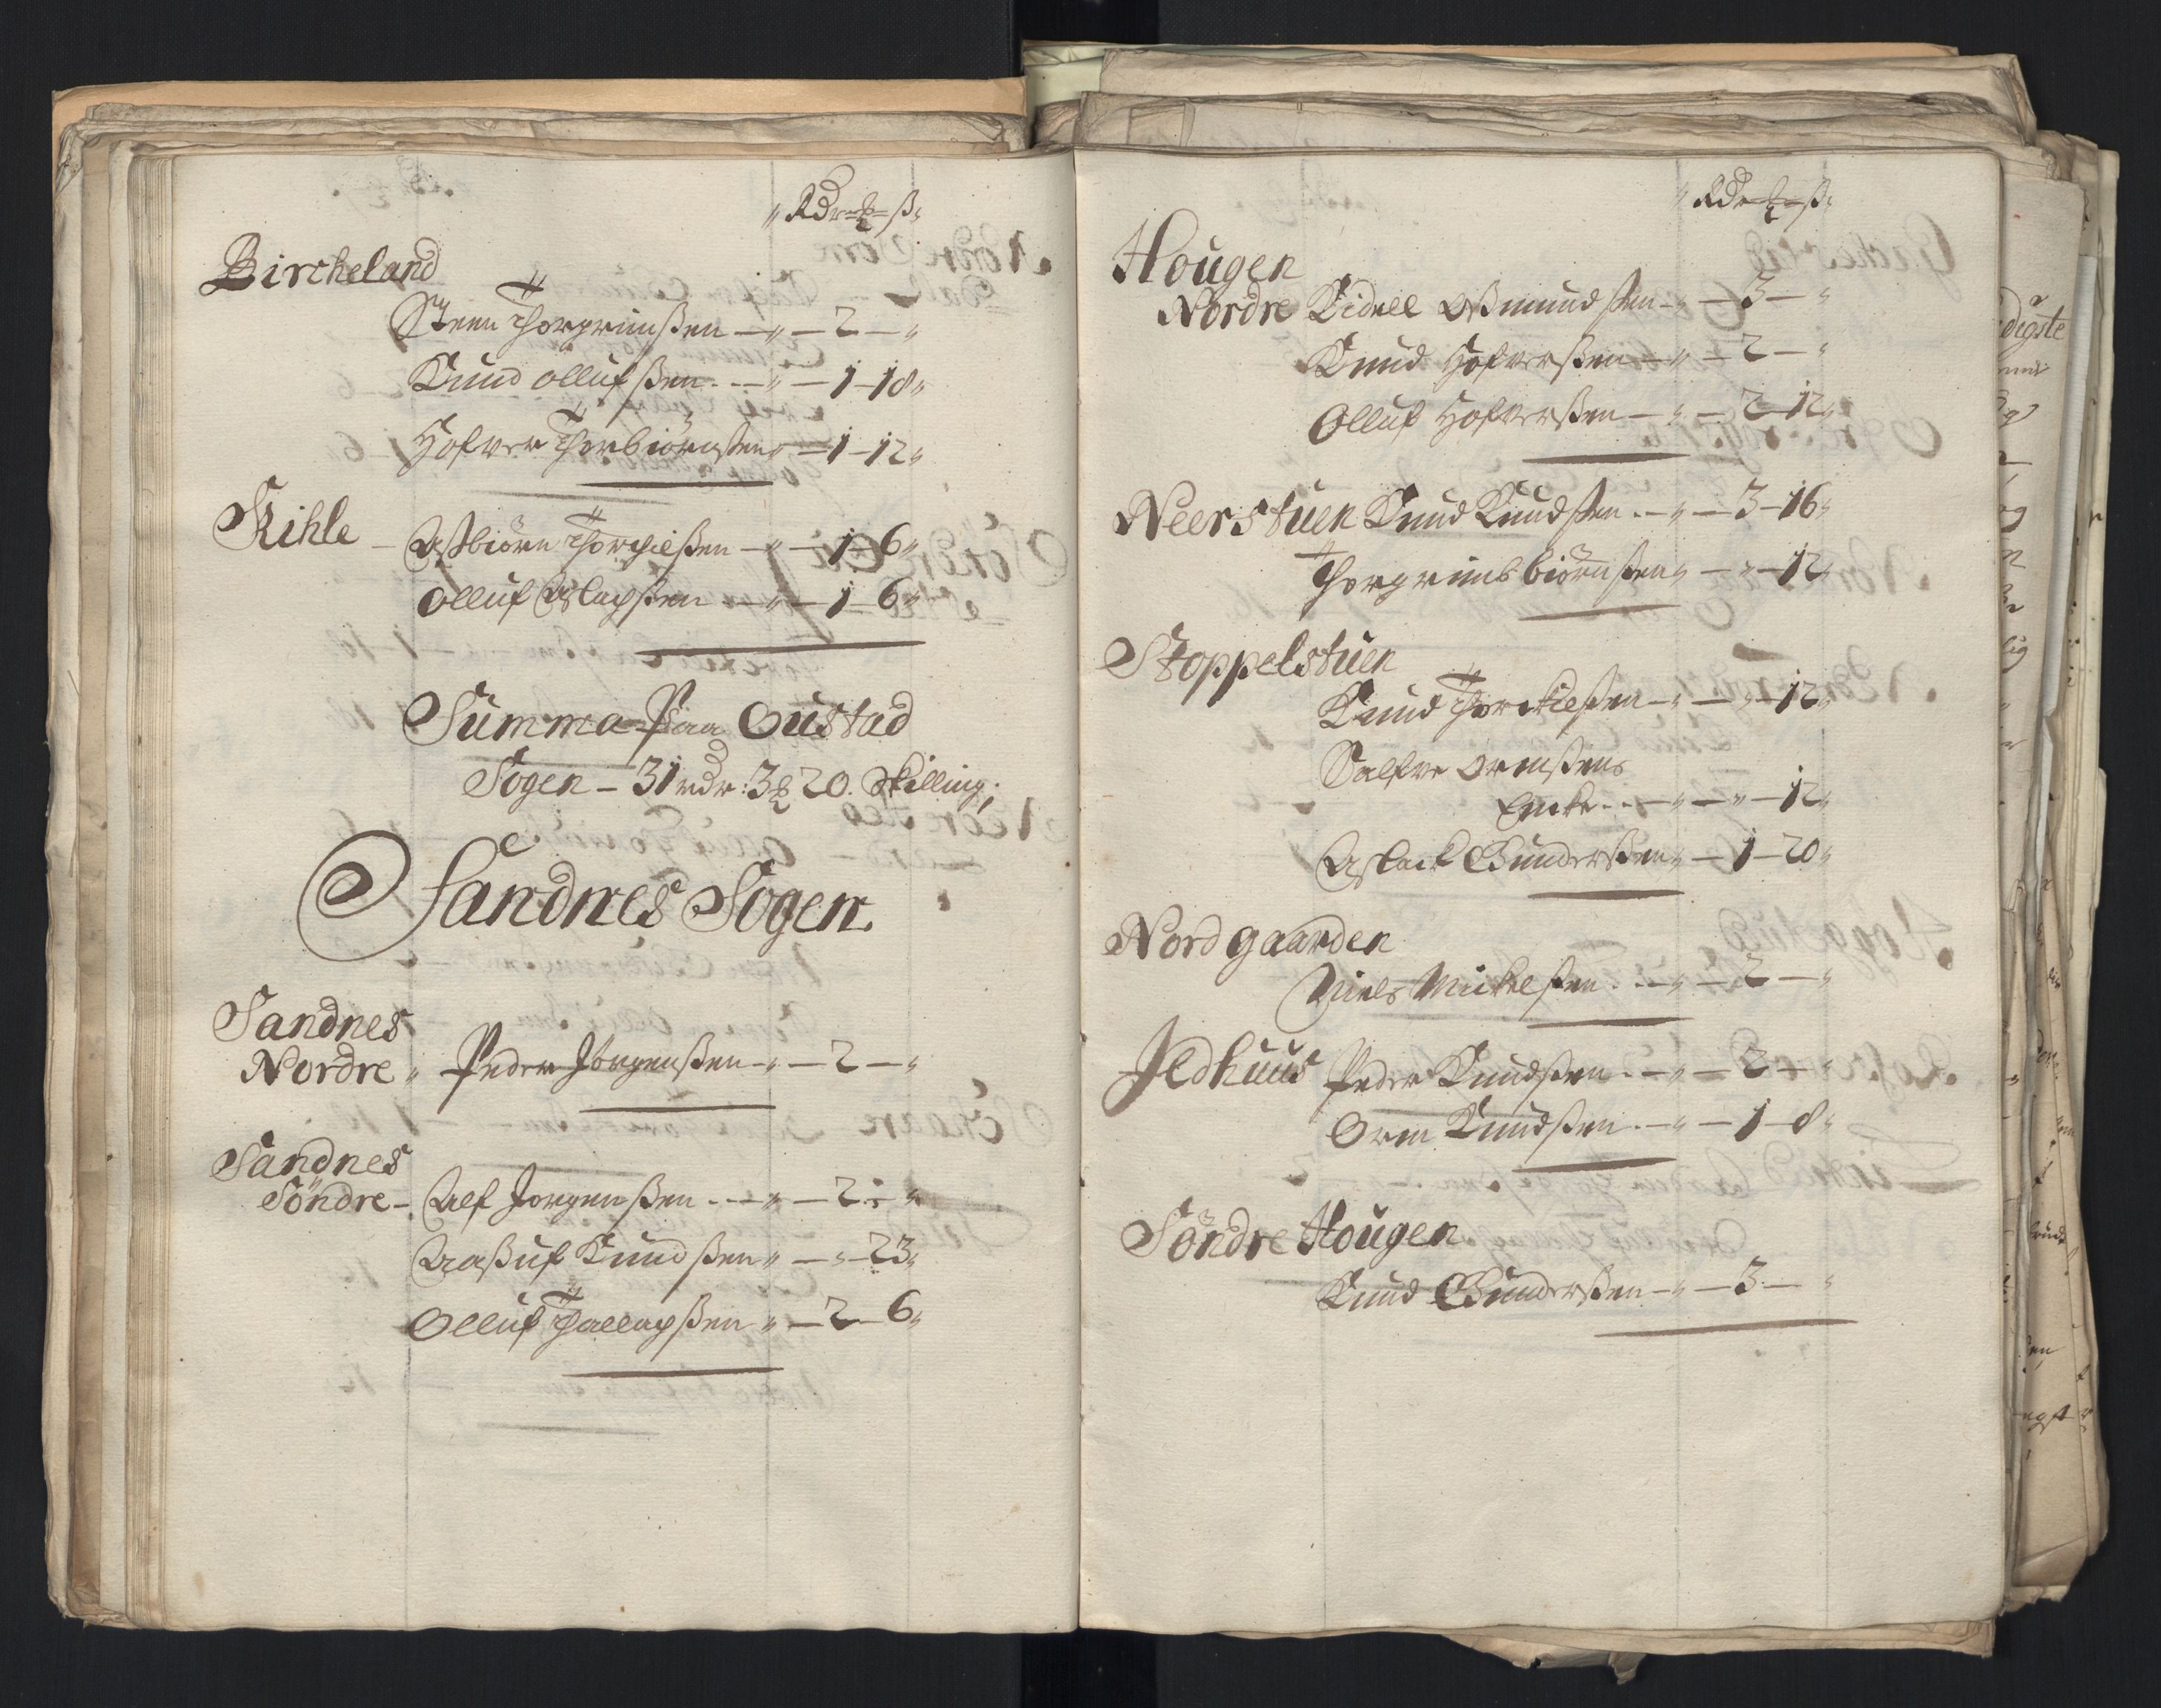 Rdr – ß
Bircheland
Steen Thorgrimßen — „ — 2 — „
Knud Ollufßen . — „ — 1 – 18 „
Hofver Thorbiørnßen „ — 1 – 12 „
Kihle – Aßbiørn Thorgießen — „ — 1 – 6 „
Olluf Aslachßen — „ — 1 – 6 „
Summa Paa Oustad
Sogen – 31 rdr : 3 20 . Skilling ;
Sandnes Sogen.
Sandnes
Nordre „ Peder Jörgenßen — „ — 2 — „
Sandnes
Söndre – Alf Jorgenßen . — „ — 2 „
Aaßuf Knudßen „ — „ – 23 „
Olluf Tallagßen „ — 2 – 6 „
Rdr – ß
Hougen
Nordre Kidell Aßmundßen – „ — 3 — „
Knud Hofverßen — „ — 2 — „
Olluf Hofverßen — „ — 2 – 12 „
Neerstuen Knud Knudßen . — „ — 3 – 16 „
Thorgrimb biörnßen „ — „ – 12 „
Stoppelstuen
Knud Thorkilßen — „ — „ – 12 „
Salfve Ormßens
Encke . . — „ — „ – 12 „
Aslack Gunderßen „ — 1 – 20 „
Nordgaarden
Niels Mickelßen . . — „ — 2 — „
Jldhuus Peder Knudßen . — „ — 2 — „
Orm Knudßen . — „ — 1 – 8 „
Söndre Hougen
Knud Gunderßen – „ — 3 — „